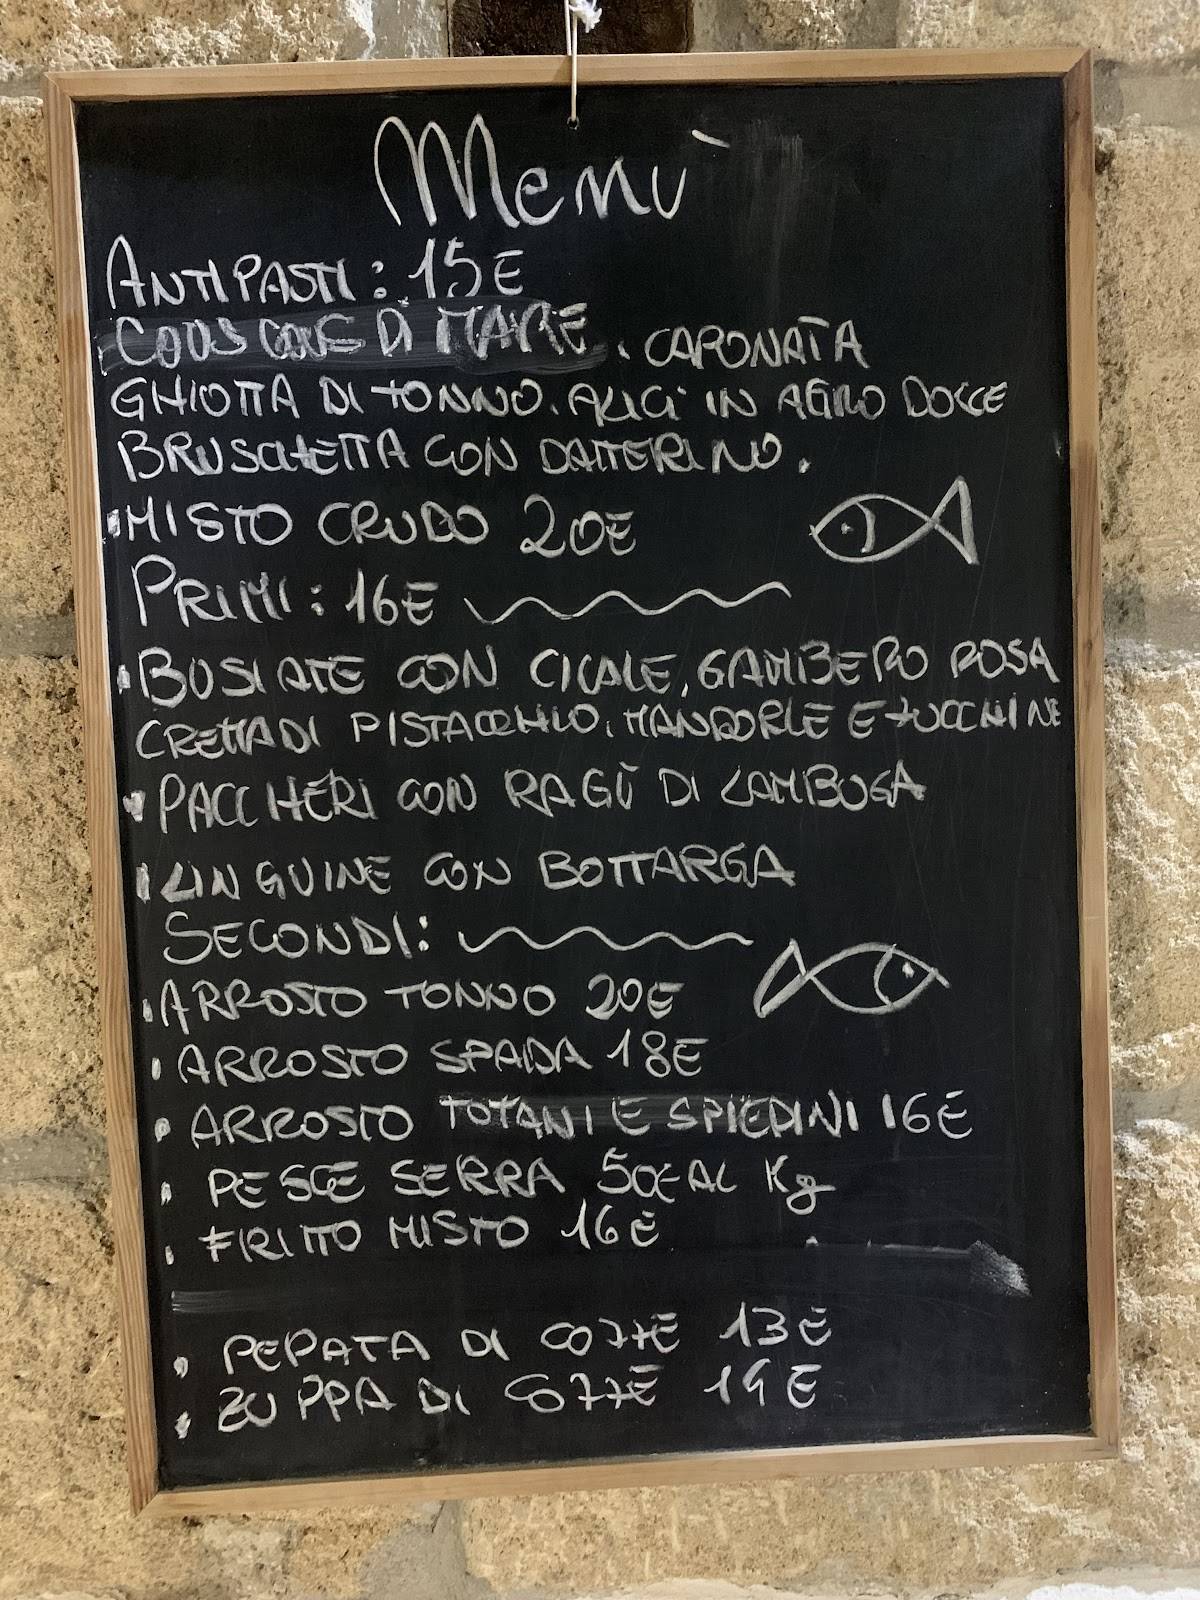 Menù
ANTIPASTI: 15€
COUS COUS DI MARE. CAPONATA
GHIOTTA DI TONNO. ALICI IN AGRO DOLCE
BRUSCHETTA CON DATTERINO.
MISTO CRUDO 20€
PRIMI: 16€
BUSIATE CON CICALE, GAMBERO ROSA
CREMA DI PISTACCHIO, MANDORLE E ZUCCHINE
PACCHERI CON RAGÙ DI LAMBUGA
LINGUINE CON BOTTARGA
SECONDI:
ARROSTO TONNO 20€
ARROSTO SPADA 18€
ARROSTO TOTANI E SPIEDINI 16€
PESCE SERRA 50€ AL Kg
FRITTO MISTO 16€
PEPATA DI COZZE 13€
ZUPPA DI COZZE €